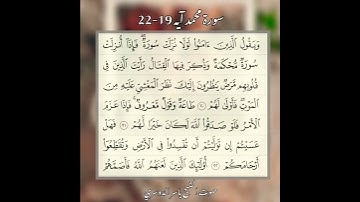 سورة محمد آية 19-22
وَيَقُولُ الَّذِينَ ءَامَنُوا لَوْلَا نُزِّلَتْ سُورَةٌ فَإِذَا أُنزِلَتْ
سُورَةٌ مُّحْكَمَةٌ وَذُكِرَ فِيهَا الْقِتَالُ رَأَيْتَ الَّذِينَ فِي
قُلُوبِهِم مَّرَضٌ يَنظُرُونَ إِلَيْكَ نَظَرَ الْمَغْشِيِّ عَلَيْهِ مِنَ
الْمَوْتِ فَأَوْلَى لَهُمْ ٢٠ طَاعَةٌ وَقَوْلٌ مَّعْرُوفٌ فَإِذَا عَزَمَ
الْأَمْرُ فَلَوْ صَدَقُوا اللَّهَ لَكَانَ خَيْرًا لَّهُمْ ٢١ فَهَلْ
عَسَيْتُمْ إِن تَوَلَّيْتُمْ أَن تُفْسِدُوا فِي الْأَرْضِ وَتُقَطِّعُوا
أَرْحَامَكُمْ ٢٢ أُولَٰئِكَ الَّذِينَ لَعَنَهُمُ اللَّهُ فَأَصَمَّهُمْ
بصوت الشيخ ياسر الدوسري